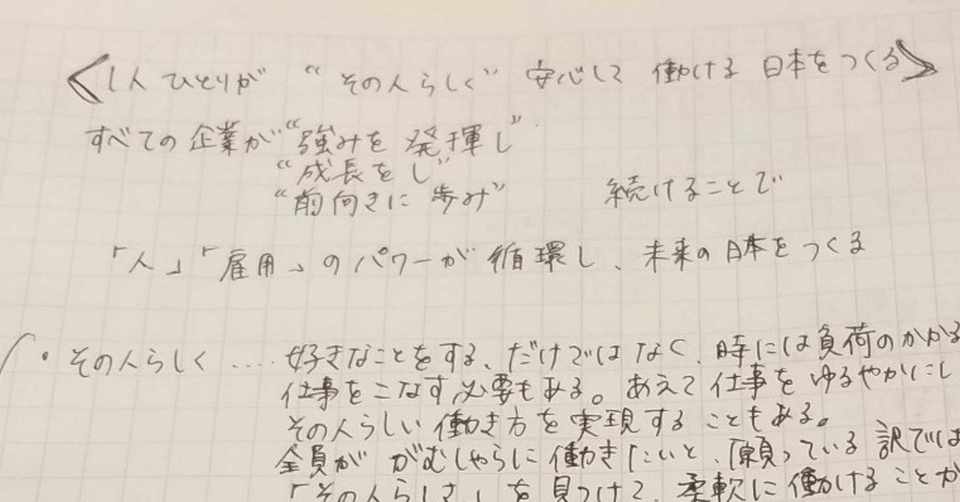 <1人ひとりが "その人らしく" 安心して 働ける 日本をつくる>
すべての企業が "強みを発揮し"
"成長をし"
"前向きに歩み" 続けることで
「人」「雇用」のパワーが循環し、未来の日本をつくる
・その人らしく ....好きなことをする、だけではなく、時には負荷のかかる
仕事をこなす必要もある。あえて仕事をゆるやかにし
その人らしい働き方を実現することもある。
全員ががむしゃらに働きたいと、願っている訳では
「その人らしさ」を見つけて、柔軟に働けることが